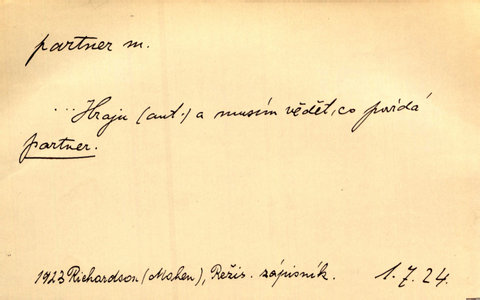 partner m.
... Hraju (aut.) a musím vědět, co povídá
partner.
1923 Richardson (Mahen), Režis. zápisník. 1.7.24.